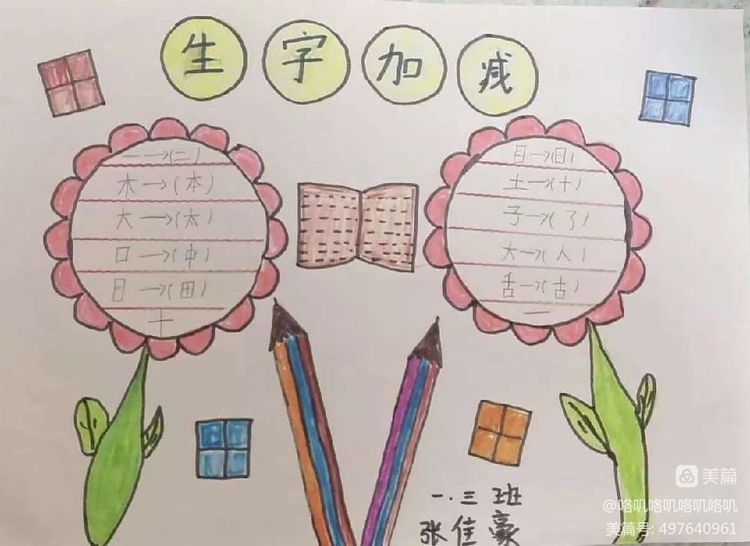 生字加减
一→(二)
木→(本)
大→(太)
口→(中)
日→(田)
十
目→(日)
土→(十)
子→(了)
大→(人)
舌→(古)
一
一.三班
张佳豪
美篇
@咯叽咯叽咯叽咯叽
美篇号: 497640961